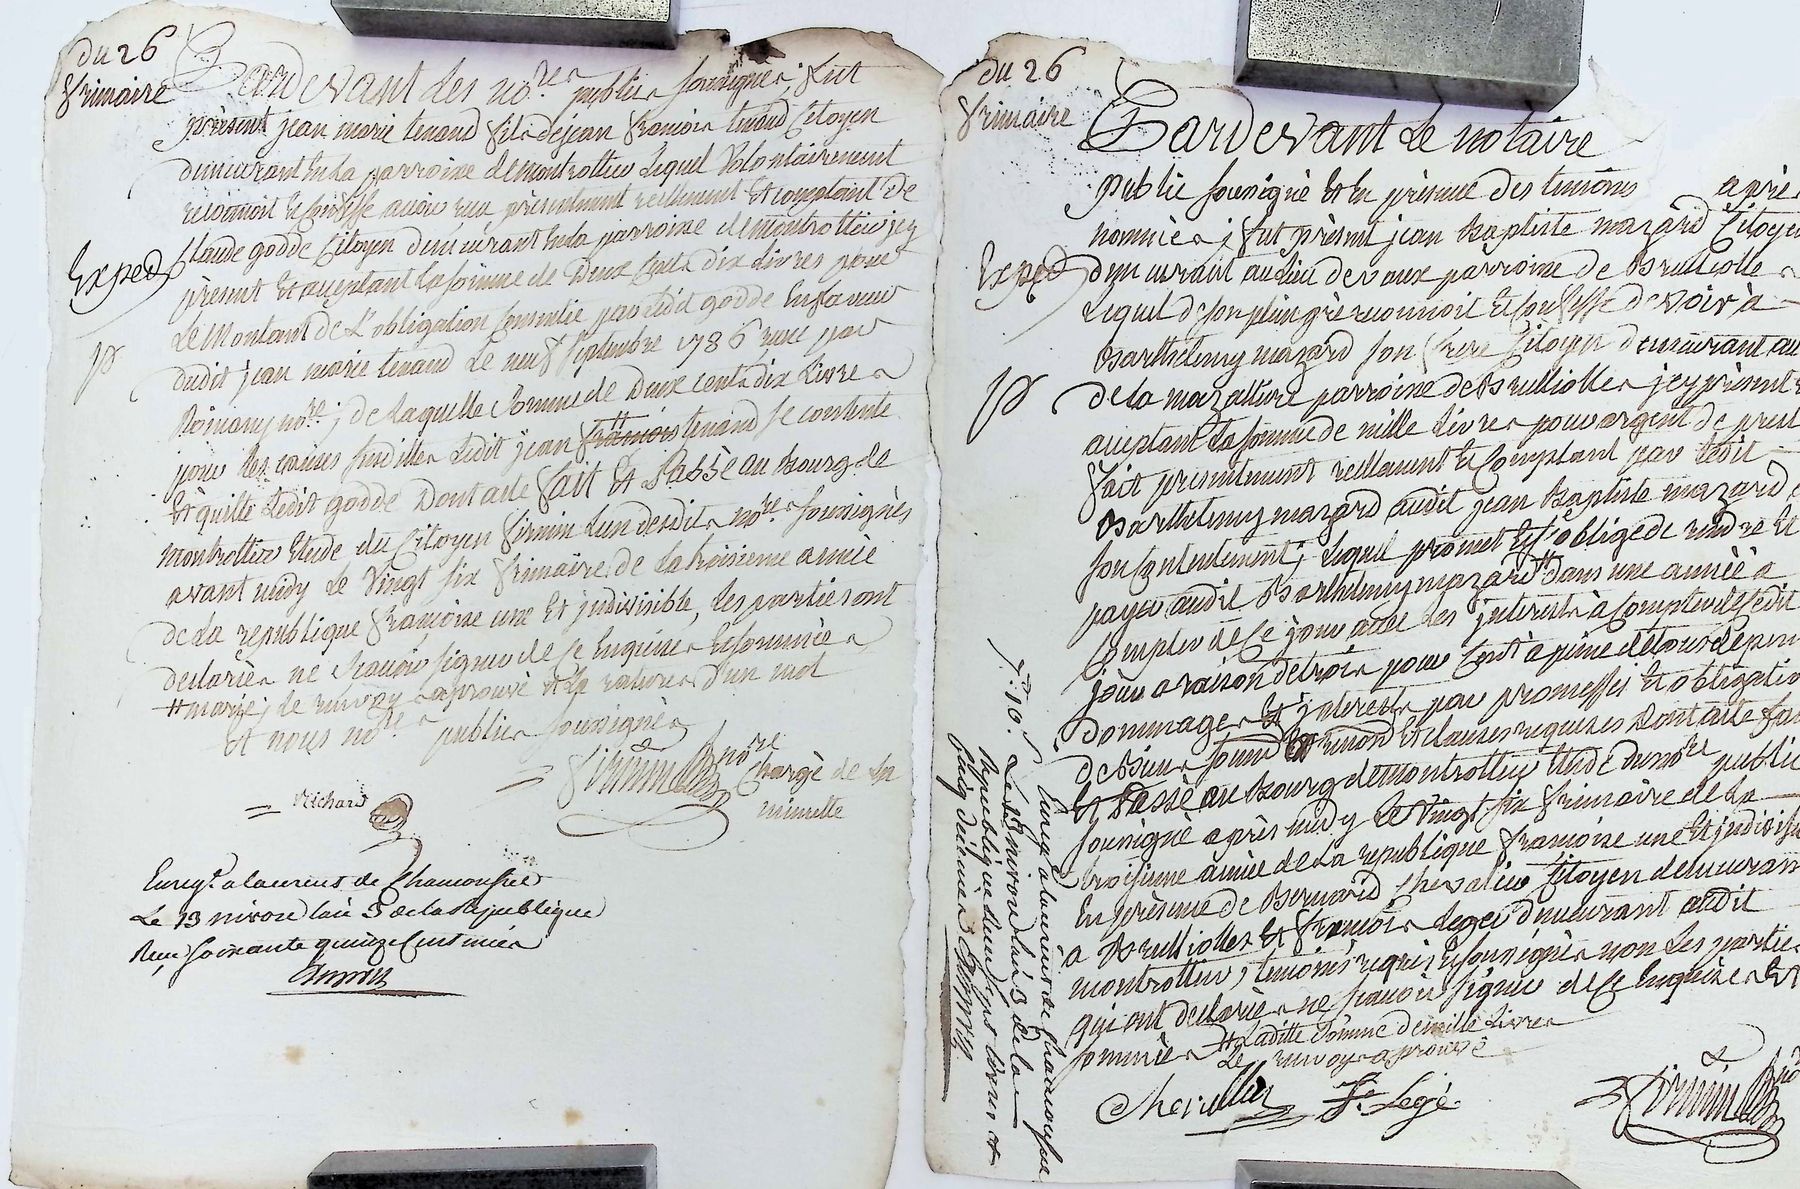 du 26
frimaire
Pardevant les no.res publics soussignés, fut
présent jean marie tenand fils de jean francois tenand Citoyen
demeurant en la parroisse de montrottier lequel volontairement
reconnoit et confesse avoir reçu présentement réellement et comptant de
Exped
Claude godde Citoyen demeurant en la parroisse de montrottier icy
présent et acceptant la somme de deux cents dix livres pour
le montant de l'obligation consentie par ledit godde en faveur
dudit jean marie tenand le neuf septembre 1786, reçue par
no.re; de laquelle somme de deux cents dix livres
pour les causes susdittes ledit jean francois tenand se contente
et quitte ledit godde dont acte fait et passé au bourg de
montrottier etude du Citoyen firmin l'un desdits no.res soussignés
avant midy le vingt six frimaire de la troisieme année
de la république francoise une et indivisible, les parties ont
declarées ne scavoir signer de ce enquises et sommées
# marie, le renvoy approuvé et la rature d'un mot
et nous no.res publics soussignés
firmin no.re
Chargé de la
minutte
Richard
Enreg.t a laurent de Chamousset
Le 13 nivose l'an 3 de la Republique
Reçu soixante quinze centimes
du 26
frimaire
Pardevant le notaire
public soussigné et en présence des temoins après
nommés, fut présent jean baptiste mazard Citoyen
Exped
demeurant au lieu de vaux parroisse de brulliolles
lequel de son plein gré reconnoit et confesse devoir à
barthelemy mazard son frère Citoyen demeurant au
de la mazalliere parroisse de brulliolles icy présent
acceptant la somme de mille livres pour argent de prest
fait presentement réellement et comptant par ledit
barthelemy mazard audit jean baptiste mazard
son contentement, lequel promet et s'oblige de rendre et
payer audit barthelemy mazard # dans une année à
compter de ce jour avec les interets à compter de cedit
jour a raison de trois pour cent à peine de tous depens
dommages et interets par promesses et obligation
de biens soumis renon et clauses requises dont acte fait
et passé au bourg de montrottier etude du no.re public
soussigné après midy le vingt six frimaire de la
troisieme année de la republique francoise une et indivisible
en présence de bernard chevalier Citoyen demeurant
a brulliolles et francois leger demeurant audit
montrottier, temoins requis et soussignés non les parties
qui ont declarées ne scavoir signer de ce enquises et
sommées # laditte somme de mille livres
le renvoy approuvé
Chevallier F. Legé firmin no
Enreg.t a laurent de Chamousset
Le 13 nivose l'an 3 de la
republique Reçu sept livres et
f.o 10.